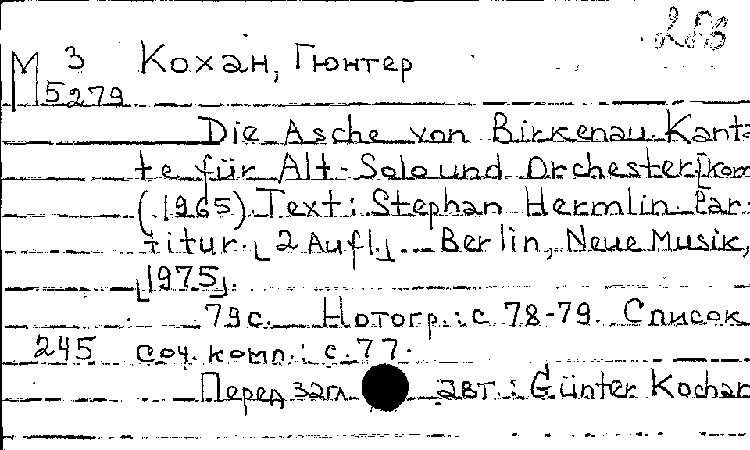 286
М 3 Кохан, Гюнтер
5279
Die Asche von Birkenau. Kanta-
te für Alt-Solo und Orchester [kom
(1965). Text: Stephan Hermlin. Par-
titur. [2 Aufl.]. - Berlin, Neue Musik,
[1975].
79 с. Нотогр.: с 78-79. Список
245 соч. комп.: с. 77.
Перед загл. авт.: Günter Kochan